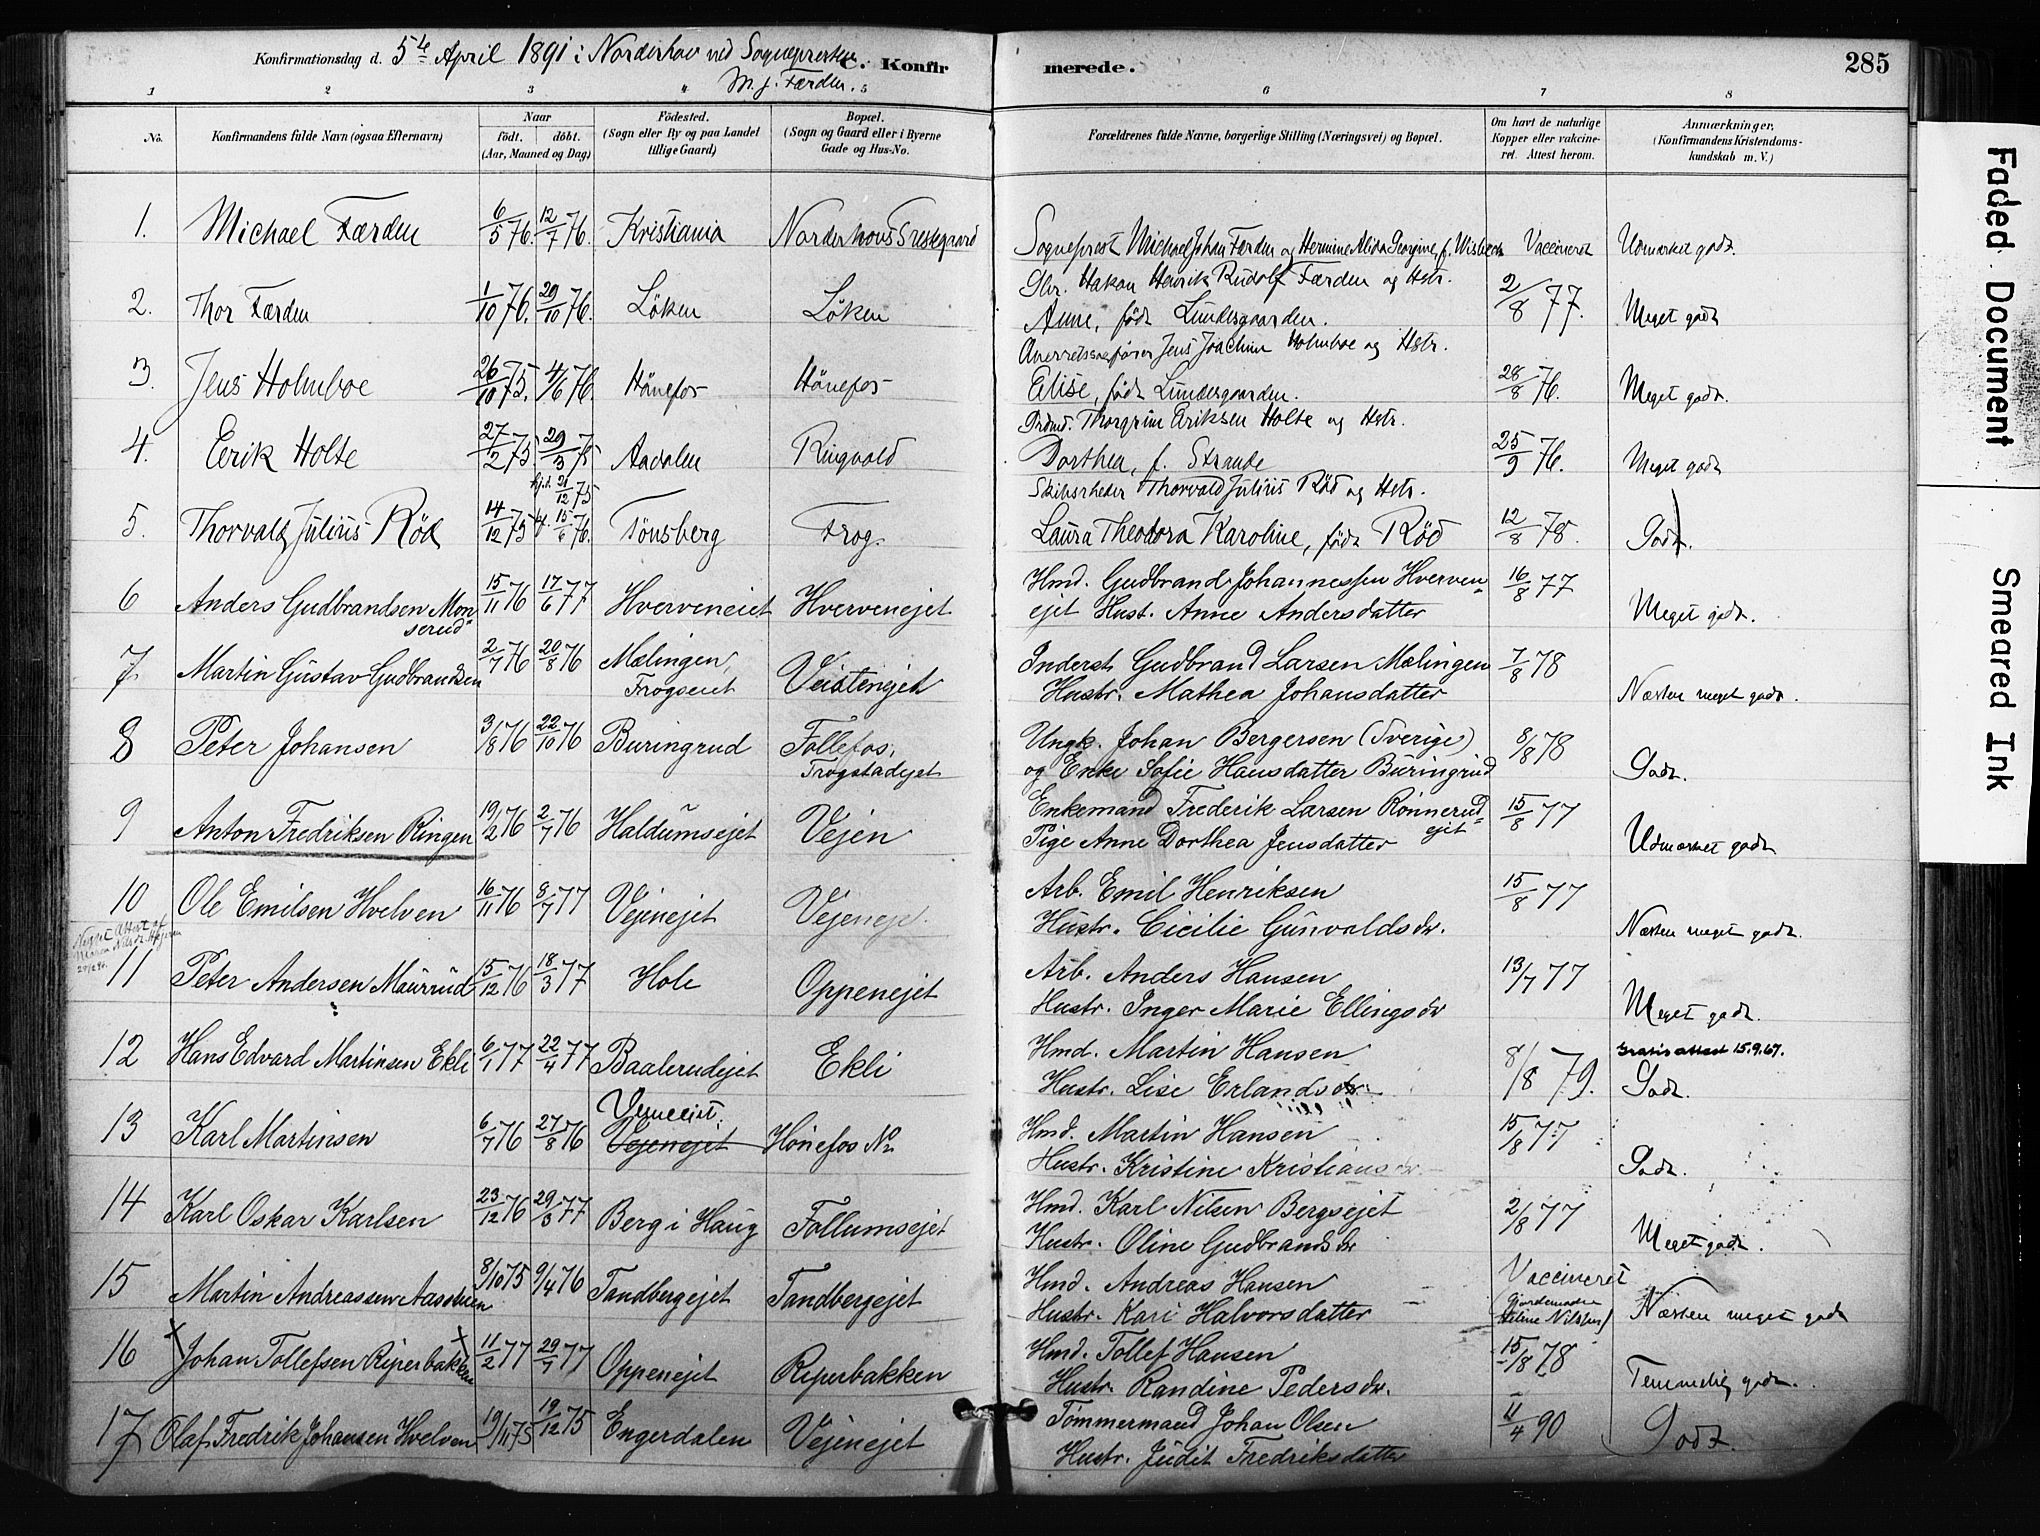 Konfirmationsdag d. 5te April 1891 i Norderhov ved Sognepresten
M. J. Færden.
C. Konfirmerede.
285
1 2 3 4 5 6 7 8
No.
Konfirmandens fulde Navn (ogsaa Efternavn)
Naar
født. døbt.
(Aar, Maaned og Dag)
Fødested.
(Sogn eller By og paa Landet tillige Gaard)
Bopæl.
(Sogn og Gaard eller i Byerne Gade og Hus-No.
Forældrenes fulde Navne, borgerlige Stilling (Næringsvei) og Bopæl.
Om havt de naturlige Kopper eller vakcineret. Attest herom.
Anmærkninger.
(Konfirmandens Kristendomskundskab m. V.)
1. Michael Færden 6/5 76. 12/7 76. Kristiania Norderhovs Prestegaard Sogneprest Michael Johan Færden og Hermine Alida Georgine, f. Wisbech Vaccineret Udmærket godt.
2. Thor Færden 1/10 76. 29/10 76. Löken Löken Gbr. Hakon Henrik Rudolf Færden og Hstr.
Anne, født Lundesgaarden. 2/8 77. Meget godt
3. Jens Holmboe 26/10 75. 4/6 76. Hönefos Hönefos Overretssagfører Jens Joachim Holmboe og Hstr.
Elise, født Lundesgaarden. 28/8 76. Meget godt.
4. Eerik Holte 27/2 75. 29/3 75 Aadalen Ringvold Thorgrim Eriksen Holte og Hstr.
Dorthea, f. Strande 25/9 76. Meget godt
5. Thorvald Julius Röd 14/12 75 hjd. 21/12 75 15/6 76. Tönsberg Frog. Skibsrheder Thorvald Julius Röd og Hstr.
Laura Theodora Karoline, født Röd 12/8 78. Godt.
6 Anders Gudbrandsen Monserud 15/11 76 17/6 77 Hverveneiet Hvervenejet Hmd. Gudbrand Johannessen Hverven-
ejet Hust. Anne Andersdatter 16/8 77 Meget godt.
7. Martin Gustav Gudbrandsen 2/7 76 20/8 76 Mælingen, Frogseiet Veistenejet Inderst Gudbrand Larsen Mælingen
Hustr. Mathea Johansdatter 7/8 78 Næsten meget godt.
8 Peter Johansen 3/8 76 22/10 76 Buringrud Follefos, Frogstadejet Ungk. Johan Bergersen (Sverige)
og Enke Sofie Hansdatter Buringrud 8/8 78 Godt.
9 Anton Fredriksen Ringen 19/2 76 2/7 76 Haldumsejet Vejen Enkemand Frederik Larsen Rønnerud-
ejet
Pige Anne Dorthea Jensdatter 15/8 77 Udmærket godt
10 Ole Emilsen Hvelven 16/11 76 8/7 77 Vejenejet Vejeneje Arb. Emil Henriksen
Hustr. Cicilie Gunvaldsdr. 15/8 77 Næsten meget godt.
11 Peter Andersen Maurud 15/12 76 18/3 77 Hole Oppenejet Arb. Anders Hansen
Hustr. Inger Marie Ellingsdr 13/7 77 Meget godt.
12 Hans Edvard Martinsen Ekli 6/1 77 22/4 77 Baalerudejet Ekli Hmd. Martin Hansen
Hustr. Lise Erlandsdr. 8/8 79. Gratis attest 15.9.67.
Godt.
13 Karl Martinsen 6/7 76 27/8 76 Vejenejet Hønefos No Hmd. Martin Hansen
Hustr. Kristine Kristiansdr 15/8 77 Godt.
14 Karl Oskar Karlsen 23/12 76 29/3 77 Berg i Haug Follumsejet Hmd. Karl Nilsen Bergsejet
Hustr. Oline Gudbrandsdr 2/8 77 Meget godt.
15 Martin Andreassen Aasveien 8/10 75 9/4 76 Tandbergejet Tandbergejet Hmd. Andreas Hansen
Hustr. Kari Halvorsdatter Vaccineret
(Gjordemoder Helene Nilssen) Næsten meget godt
16 Johan Tollefsen Riperbakken 11/2 77 29/7 77 Oppenejet Riperbakken Hmd. Tollef Hansen
Hustr. Randine Pedersdr. 15/8 78 Temmelig godt.
17 Olaf Fredrik Johansen Hvelven 19/11 75 19/12 75 Engerdalen Vejenejet Tömmermand Johan Olsen
Hustr. Judit Fredriksdatter 11/4 90 Godt.
Faded Document
Smeared Ink